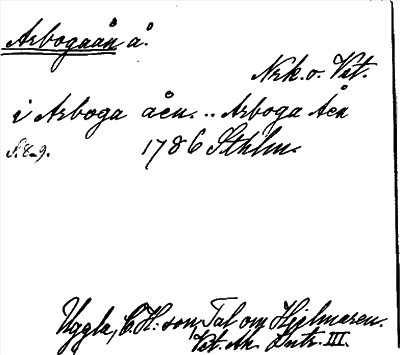 Arbogaån å.
Nrk. o. Vst.
i Arboga åen... Arboga Åen
S. 8-9. 1786 Sthlm.
Uggla, C. H:son, Tal om Hjelmaren.
Vet. Ak. Intr. III.